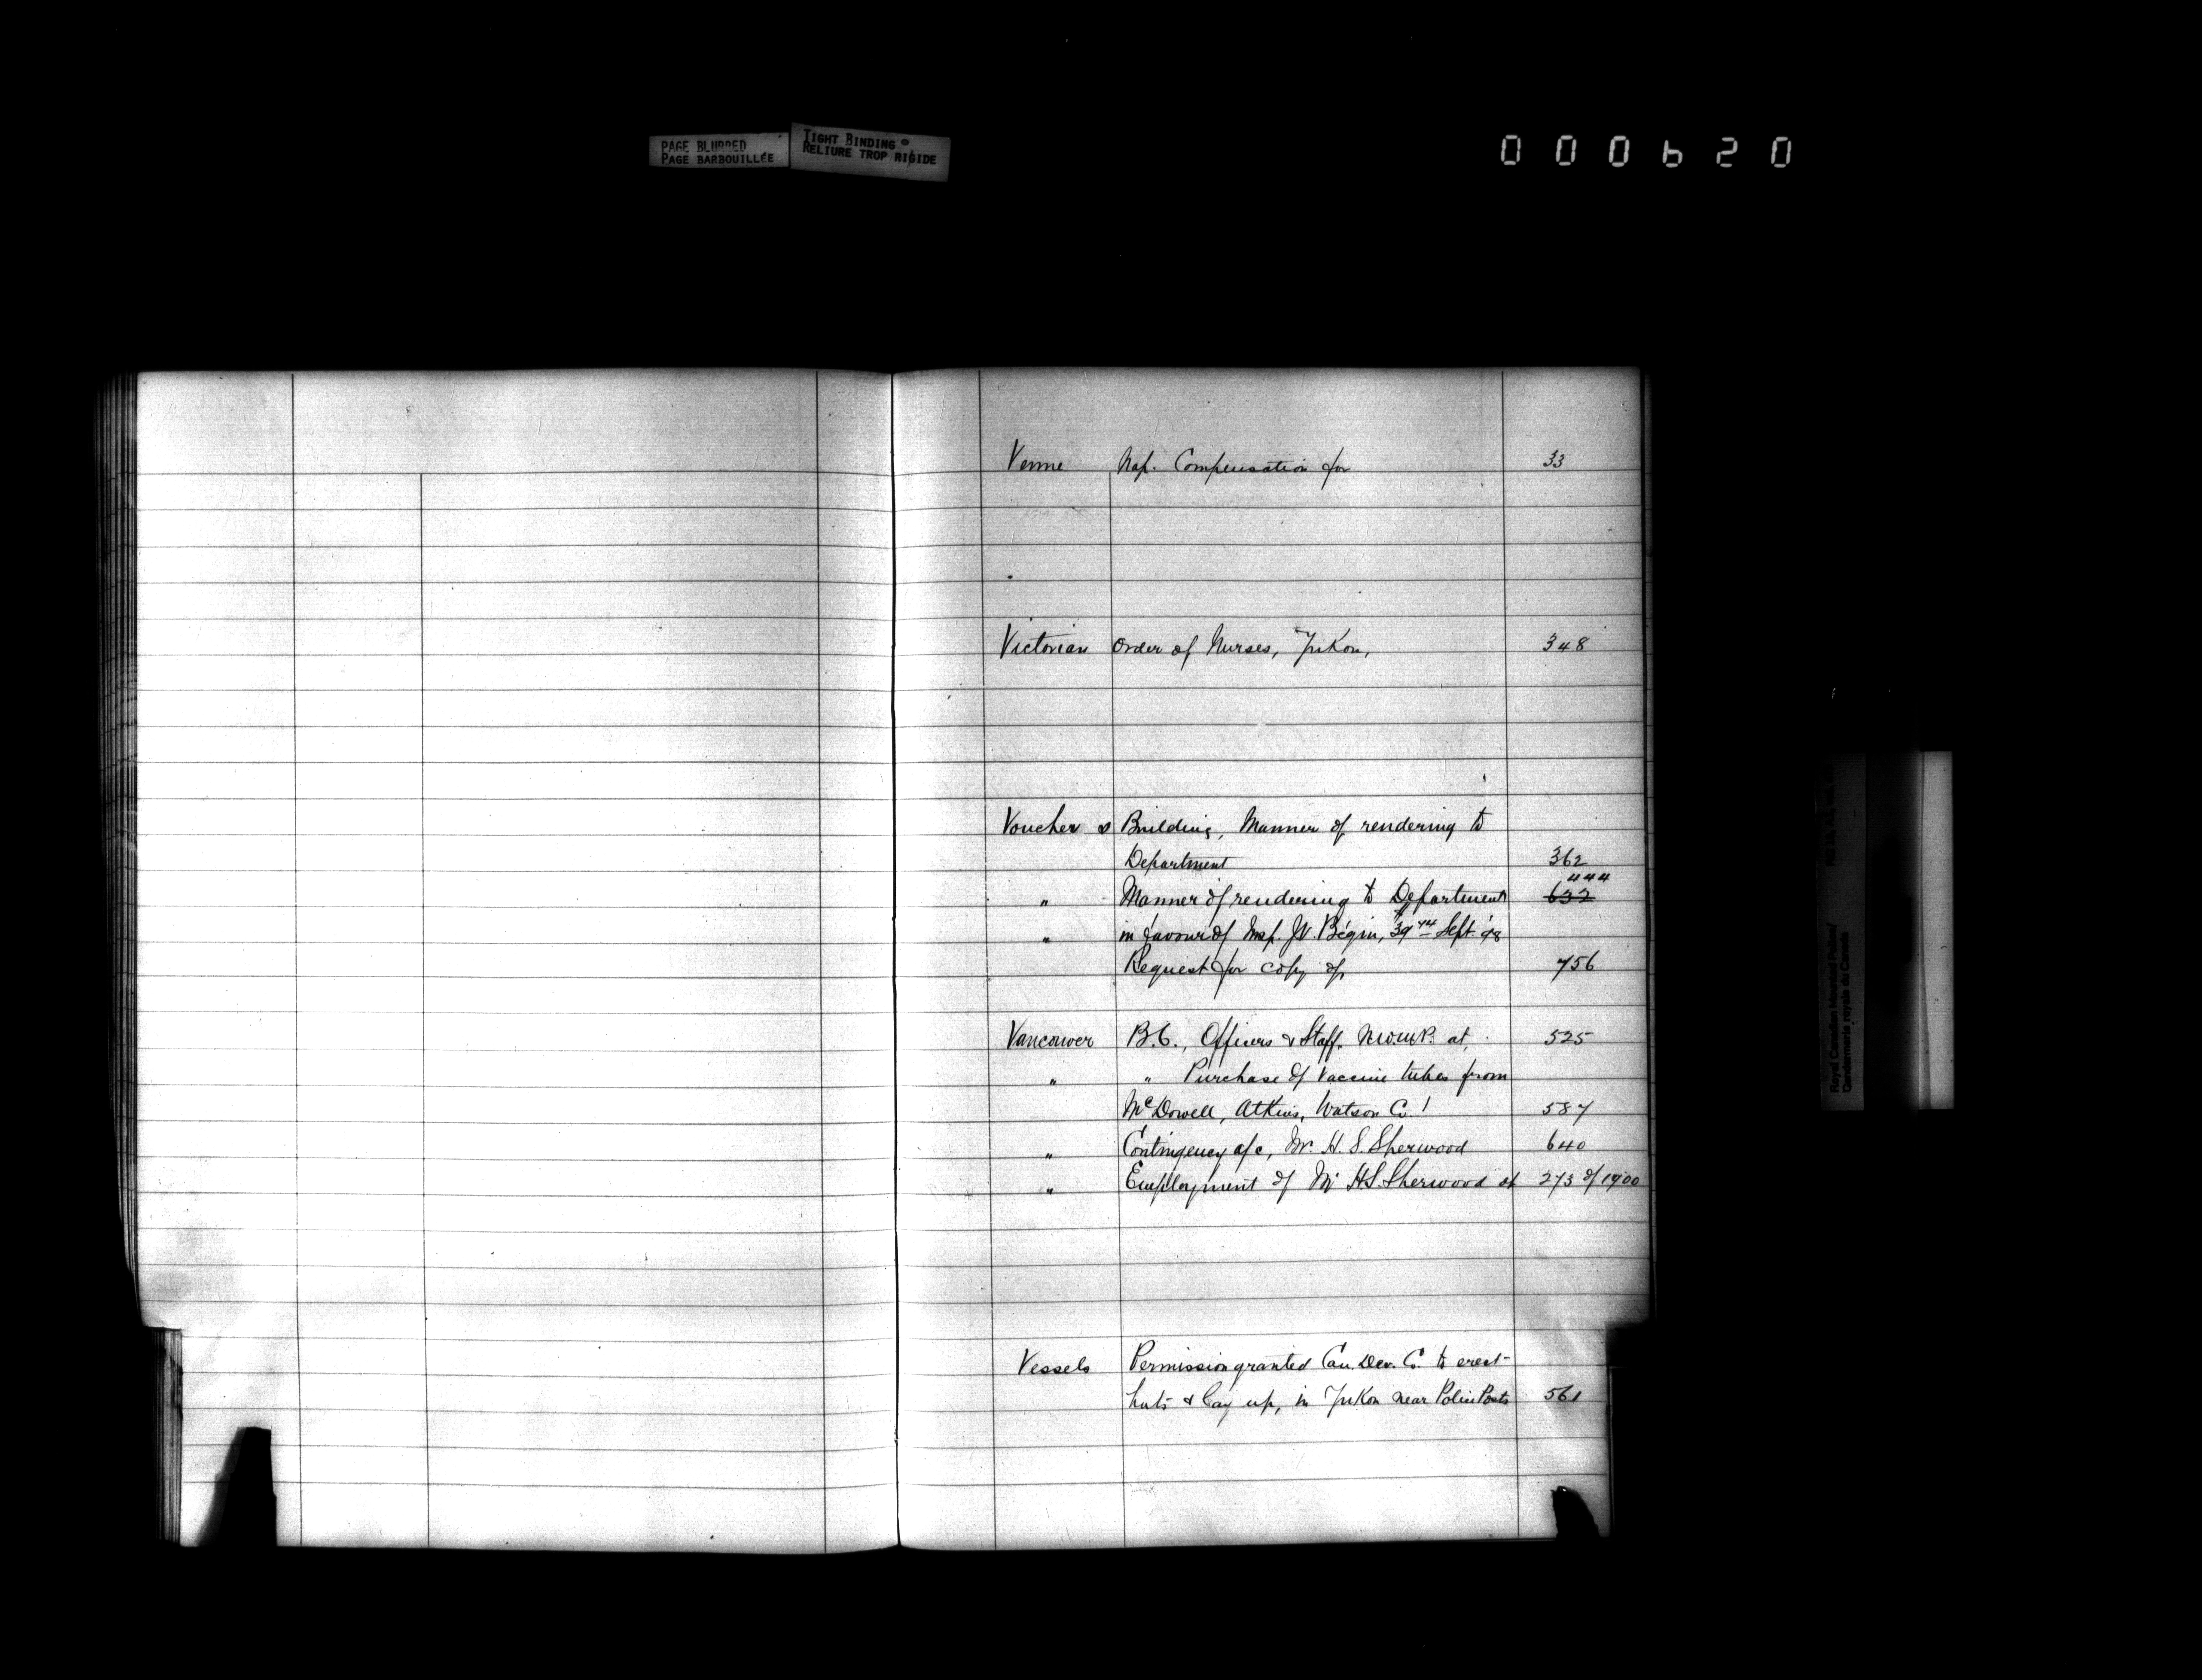 PAGE BLURRED
PAGE BARBOUILLÉE
TIGHT BINDING
RELIURE TROP RIGIDE
000620
Venne Nap. Compensation for 33
Victorian Order of Nurses, Yukon, 348
Voucher s Building, Manner of rendering to
Department 362
444
" Manner of rendering to Department 632
" in favour of Insp. J.V. Bégin, Sept. 98
Request for copy of, 756
Vancouver B.C., Officers & Staff. N.W.M.P. at, 525
" " Purchase of Vaccine tubes from
McDowell, Atkins, Watson Co. 587
" Contingency a/c, Mr. H. S. Sherwood 640
" Employment of Mr H.S. Sherwood at 273 of 1900
Vessels Permission granted Can. Dev. Co. to erect
huts & lay up, in Yukon near Police Posts 561
Royal Canadian Mounted Police/
Gendarmerie royale du Canada